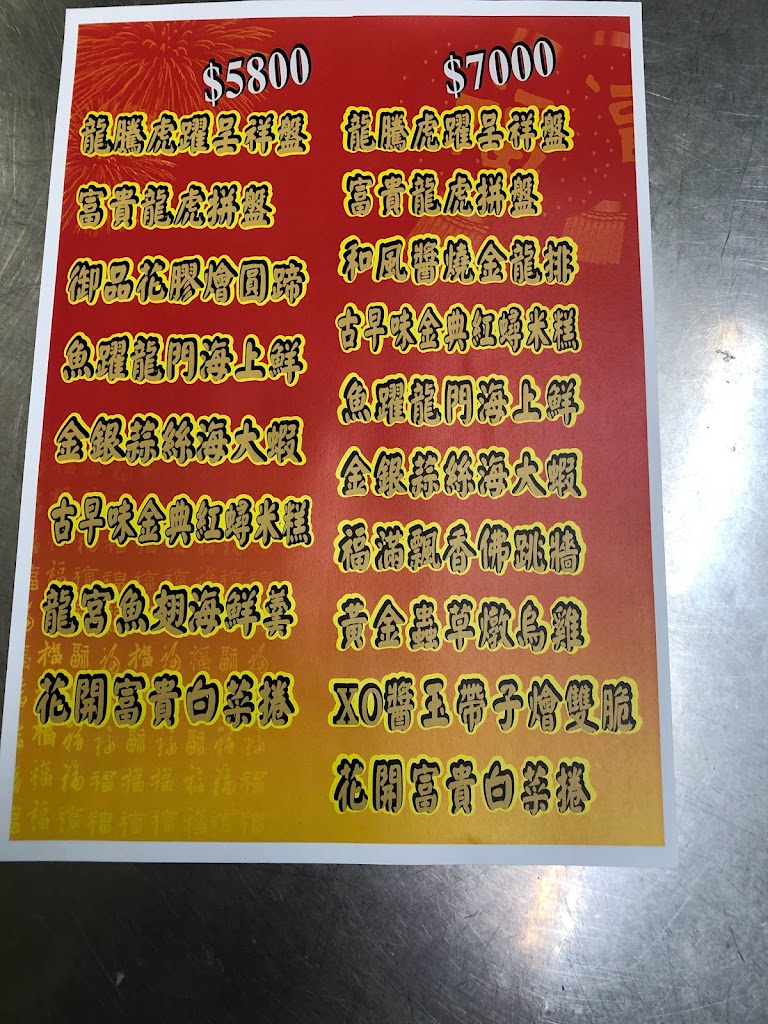 $5800
龍騰虎躍呈祥盤
富貴龍虎拼盤
御品花膠燴圓蹄
魚躍龍門海上鮮
金銀蒜絲海大蝦
古早味金典紅蟳米糕
龍宮魚翅海鮮羹
花開富貴白菜捲
$7000
龍騰虎躍呈祥盤
富貴龍虎拼盤
和風醬燒金龍排
古早味金典紅蟳米糕
魚躍龍門海上鮮
金銀蒜絲海大蝦
福滿飄香佛跳牆
黃金蟲草燉烏雞
XO醬玉帶子燴雙脆
花開富貴白菜捲